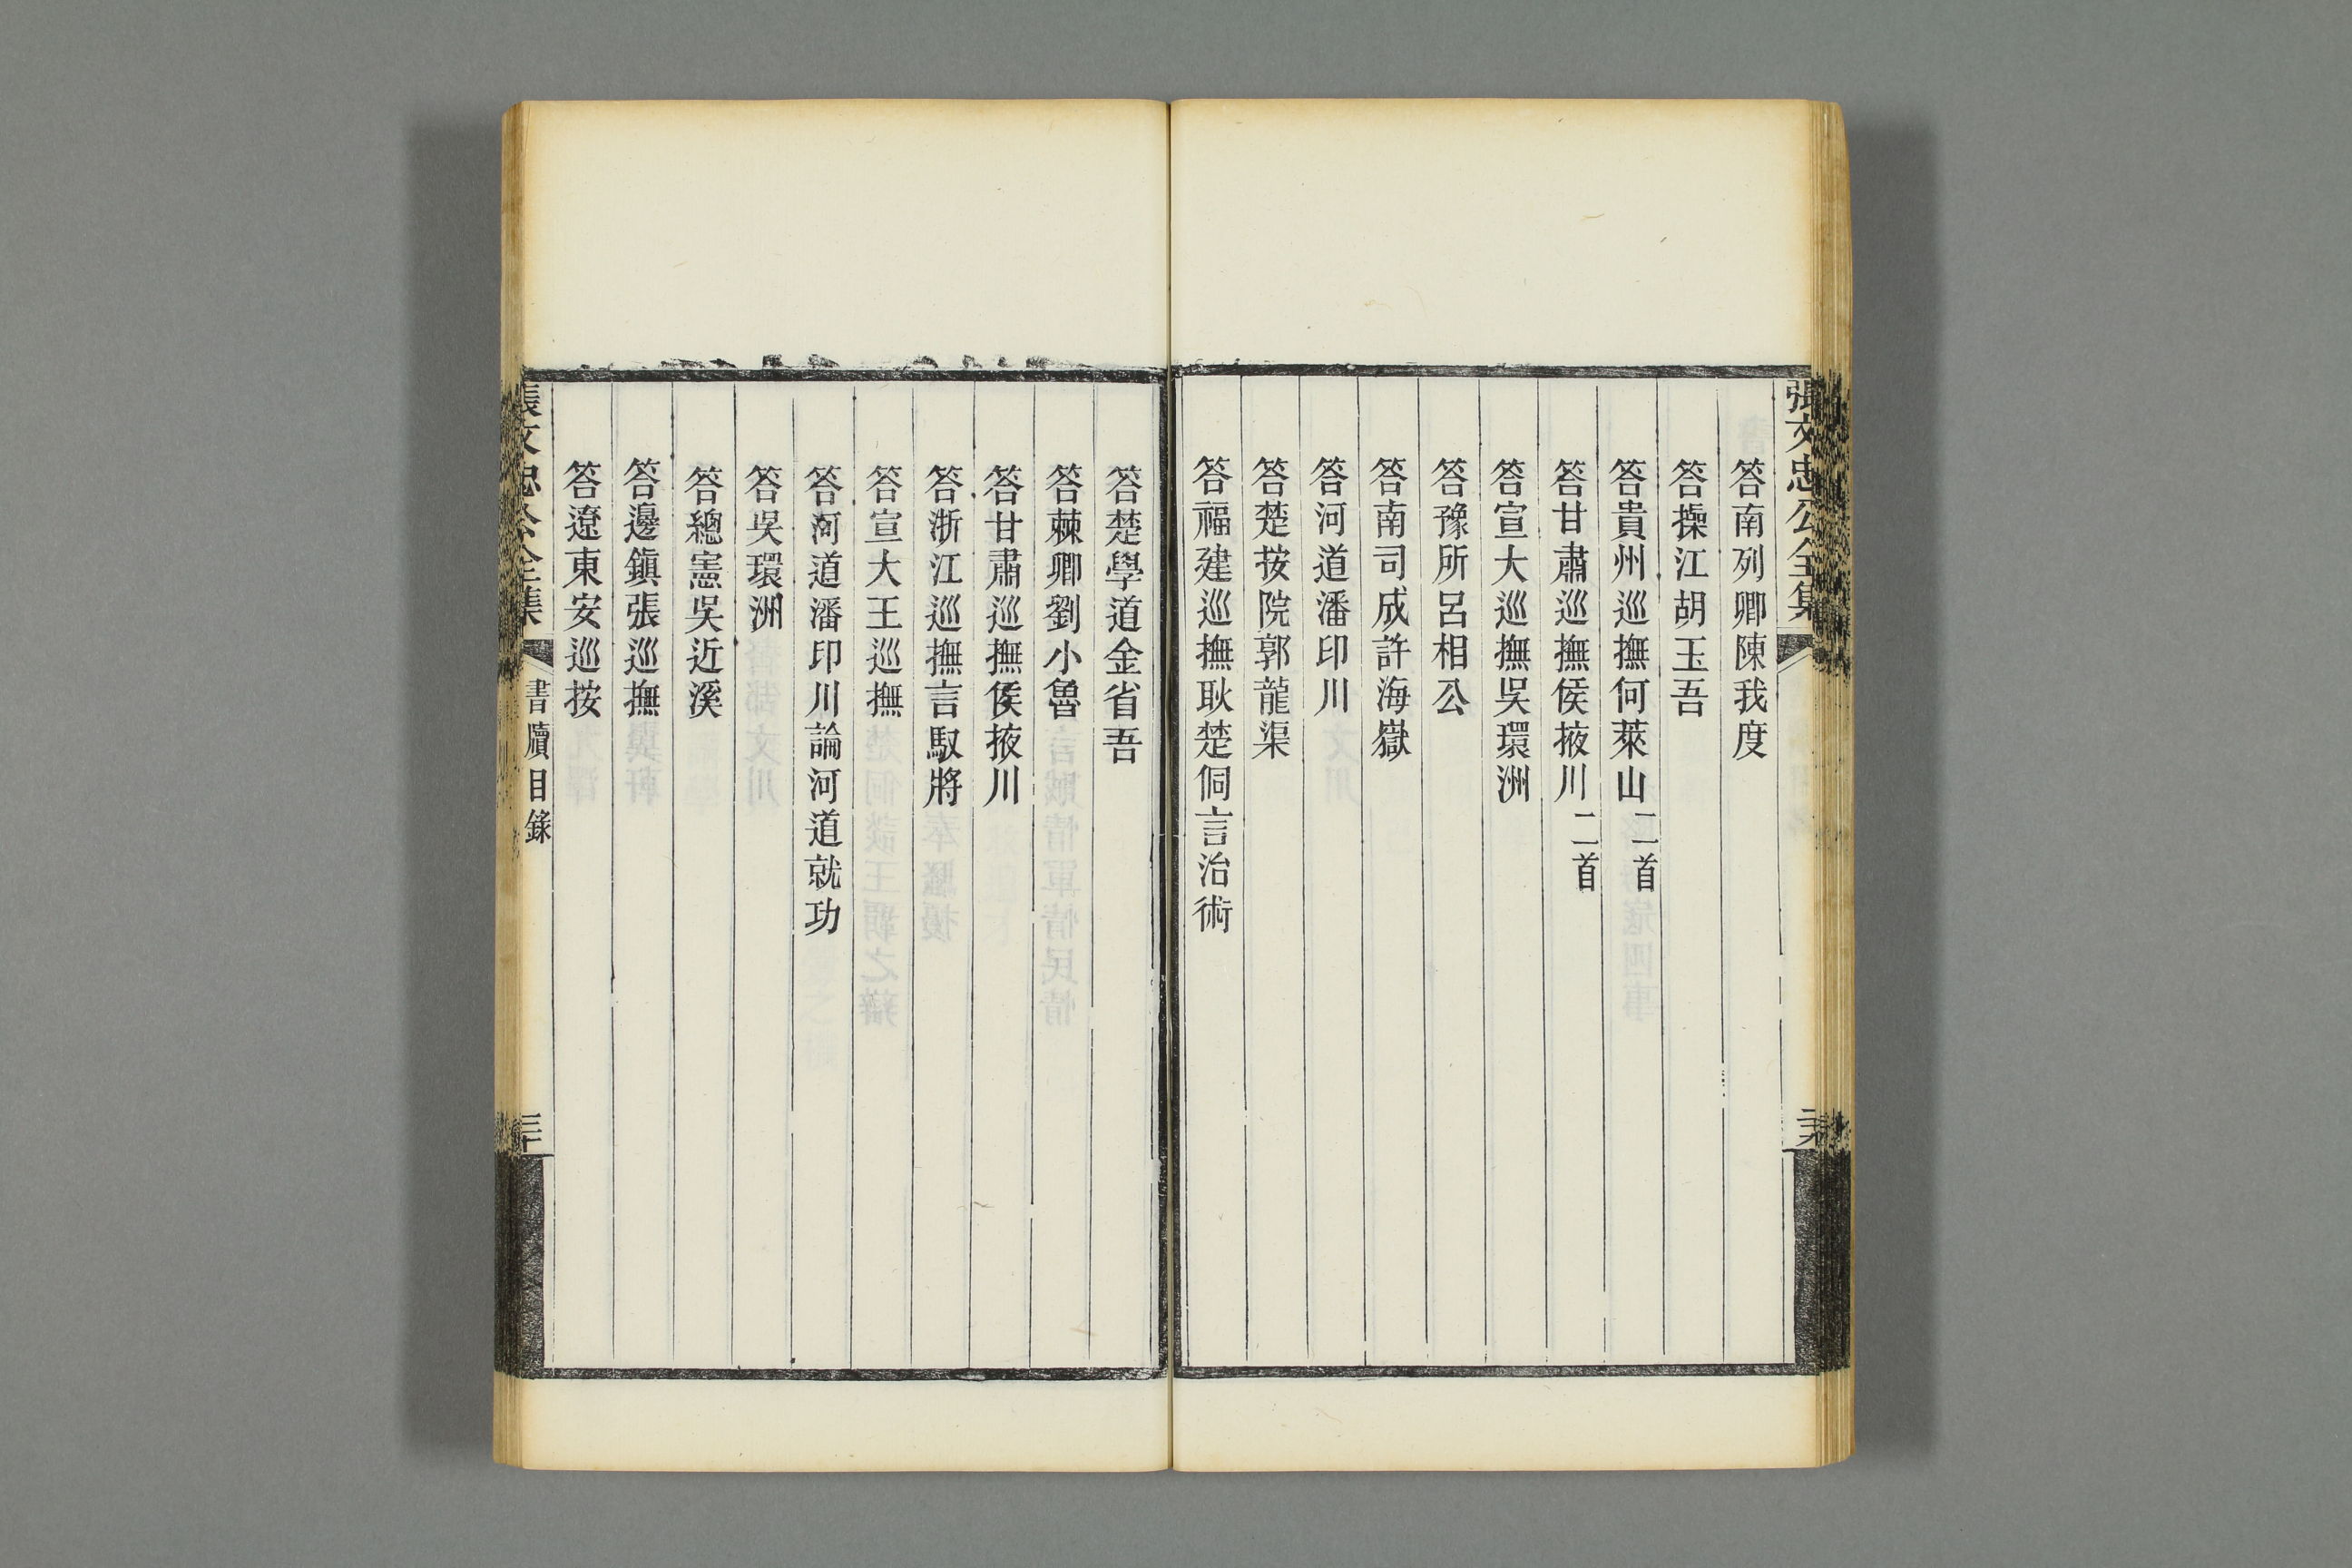 張文忠公全集
答南列卿陳我度
答操江胡玉吾
答貴州巡撫何萊山二首
答甘肅巡撫侯掖川二首
答宣大巡撫吳環洲
答豫所呂相公
答南司成許海嶽
答河道潘印川
答楚按院郭龍渠
答福建巡撫耿楚侗言治術
答楚學道金省吾
答棘卿劉小魯
答甘肅巡撫侯掖川
答浙江巡撫言馭將
答宣大王巡撫
答河道潘印川論河道就功
答吳環洲
答總憲吳近溪
答邊鎮張巡撫
答遼東安巡按
張文忠公全集
書牘目錄